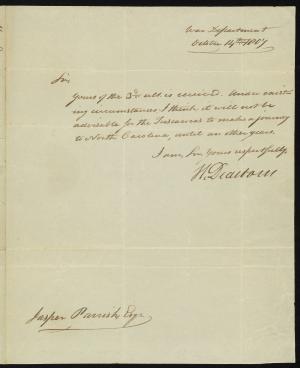 War Department
October 14th 1807
Sir
Yours of the 3d ult. is received. Under exist-
ing circumstances I think it will not be
advisable for the Tuscaroras to make a journey
to North Carolina, until an other year.
I am, Sir, Yours respectfully,
H. Dearborn
Jasper Parrish Esqr.